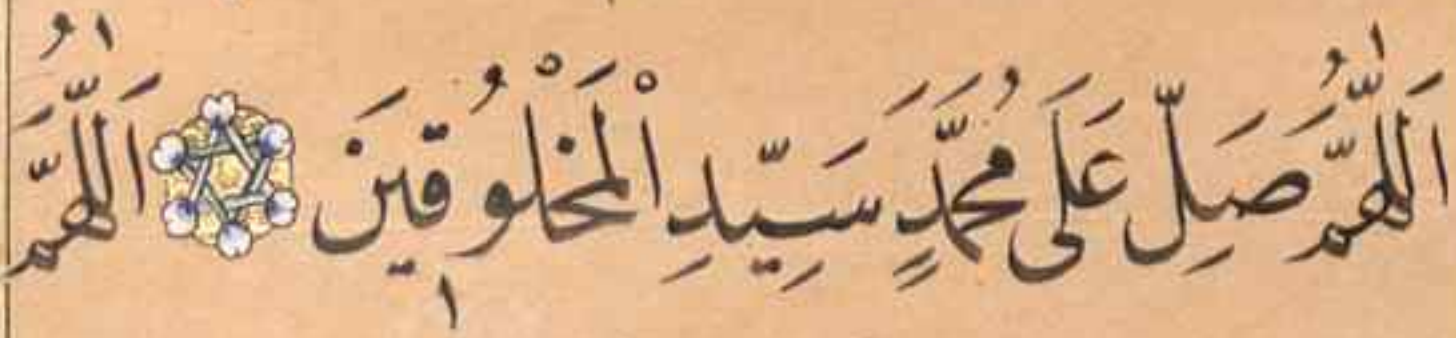 اَللّٰهُمَّ صَلِّ عَلَى مُحَمَّدٍ سَيِّدِ الْمَخْلُوقِينَ اَللّٰهُمَّ